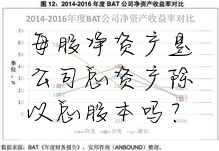 图 12：2014-2016 年度 BAT 公司净资产收益率对比
2014-2016年度BAT公司净资产收益率对比
每股净资产是
公司总资产除
以总股本吗？
数据来源：BAT《年度财务报告》，安邦咨询（ANBOUND）整理。